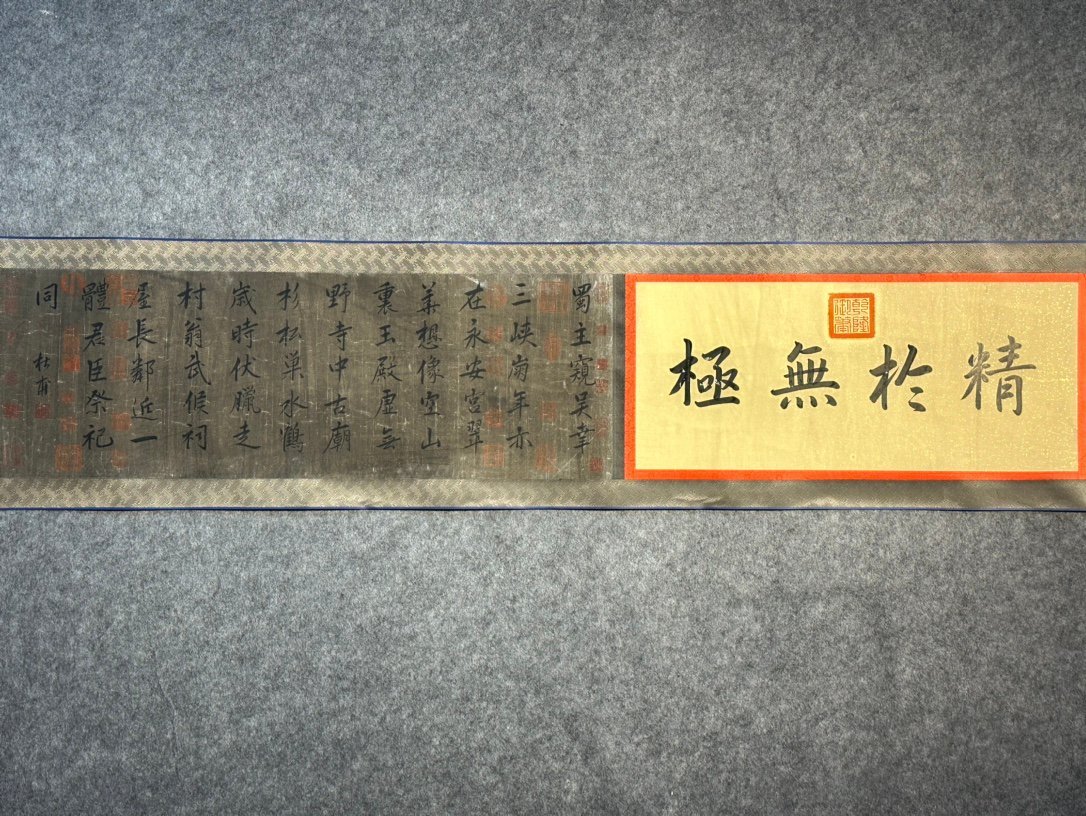 精於無極
乾隆御筆
蜀主窺吳幸
三峽崩年亦
在永安宮翠
華想像空山
裏玉殿虛無
野寺中古廟
杉松巢水鶴
歲時伏臘走
村翁武侯祠
屋長鄰近一
體君臣祭祀
同
杜甫